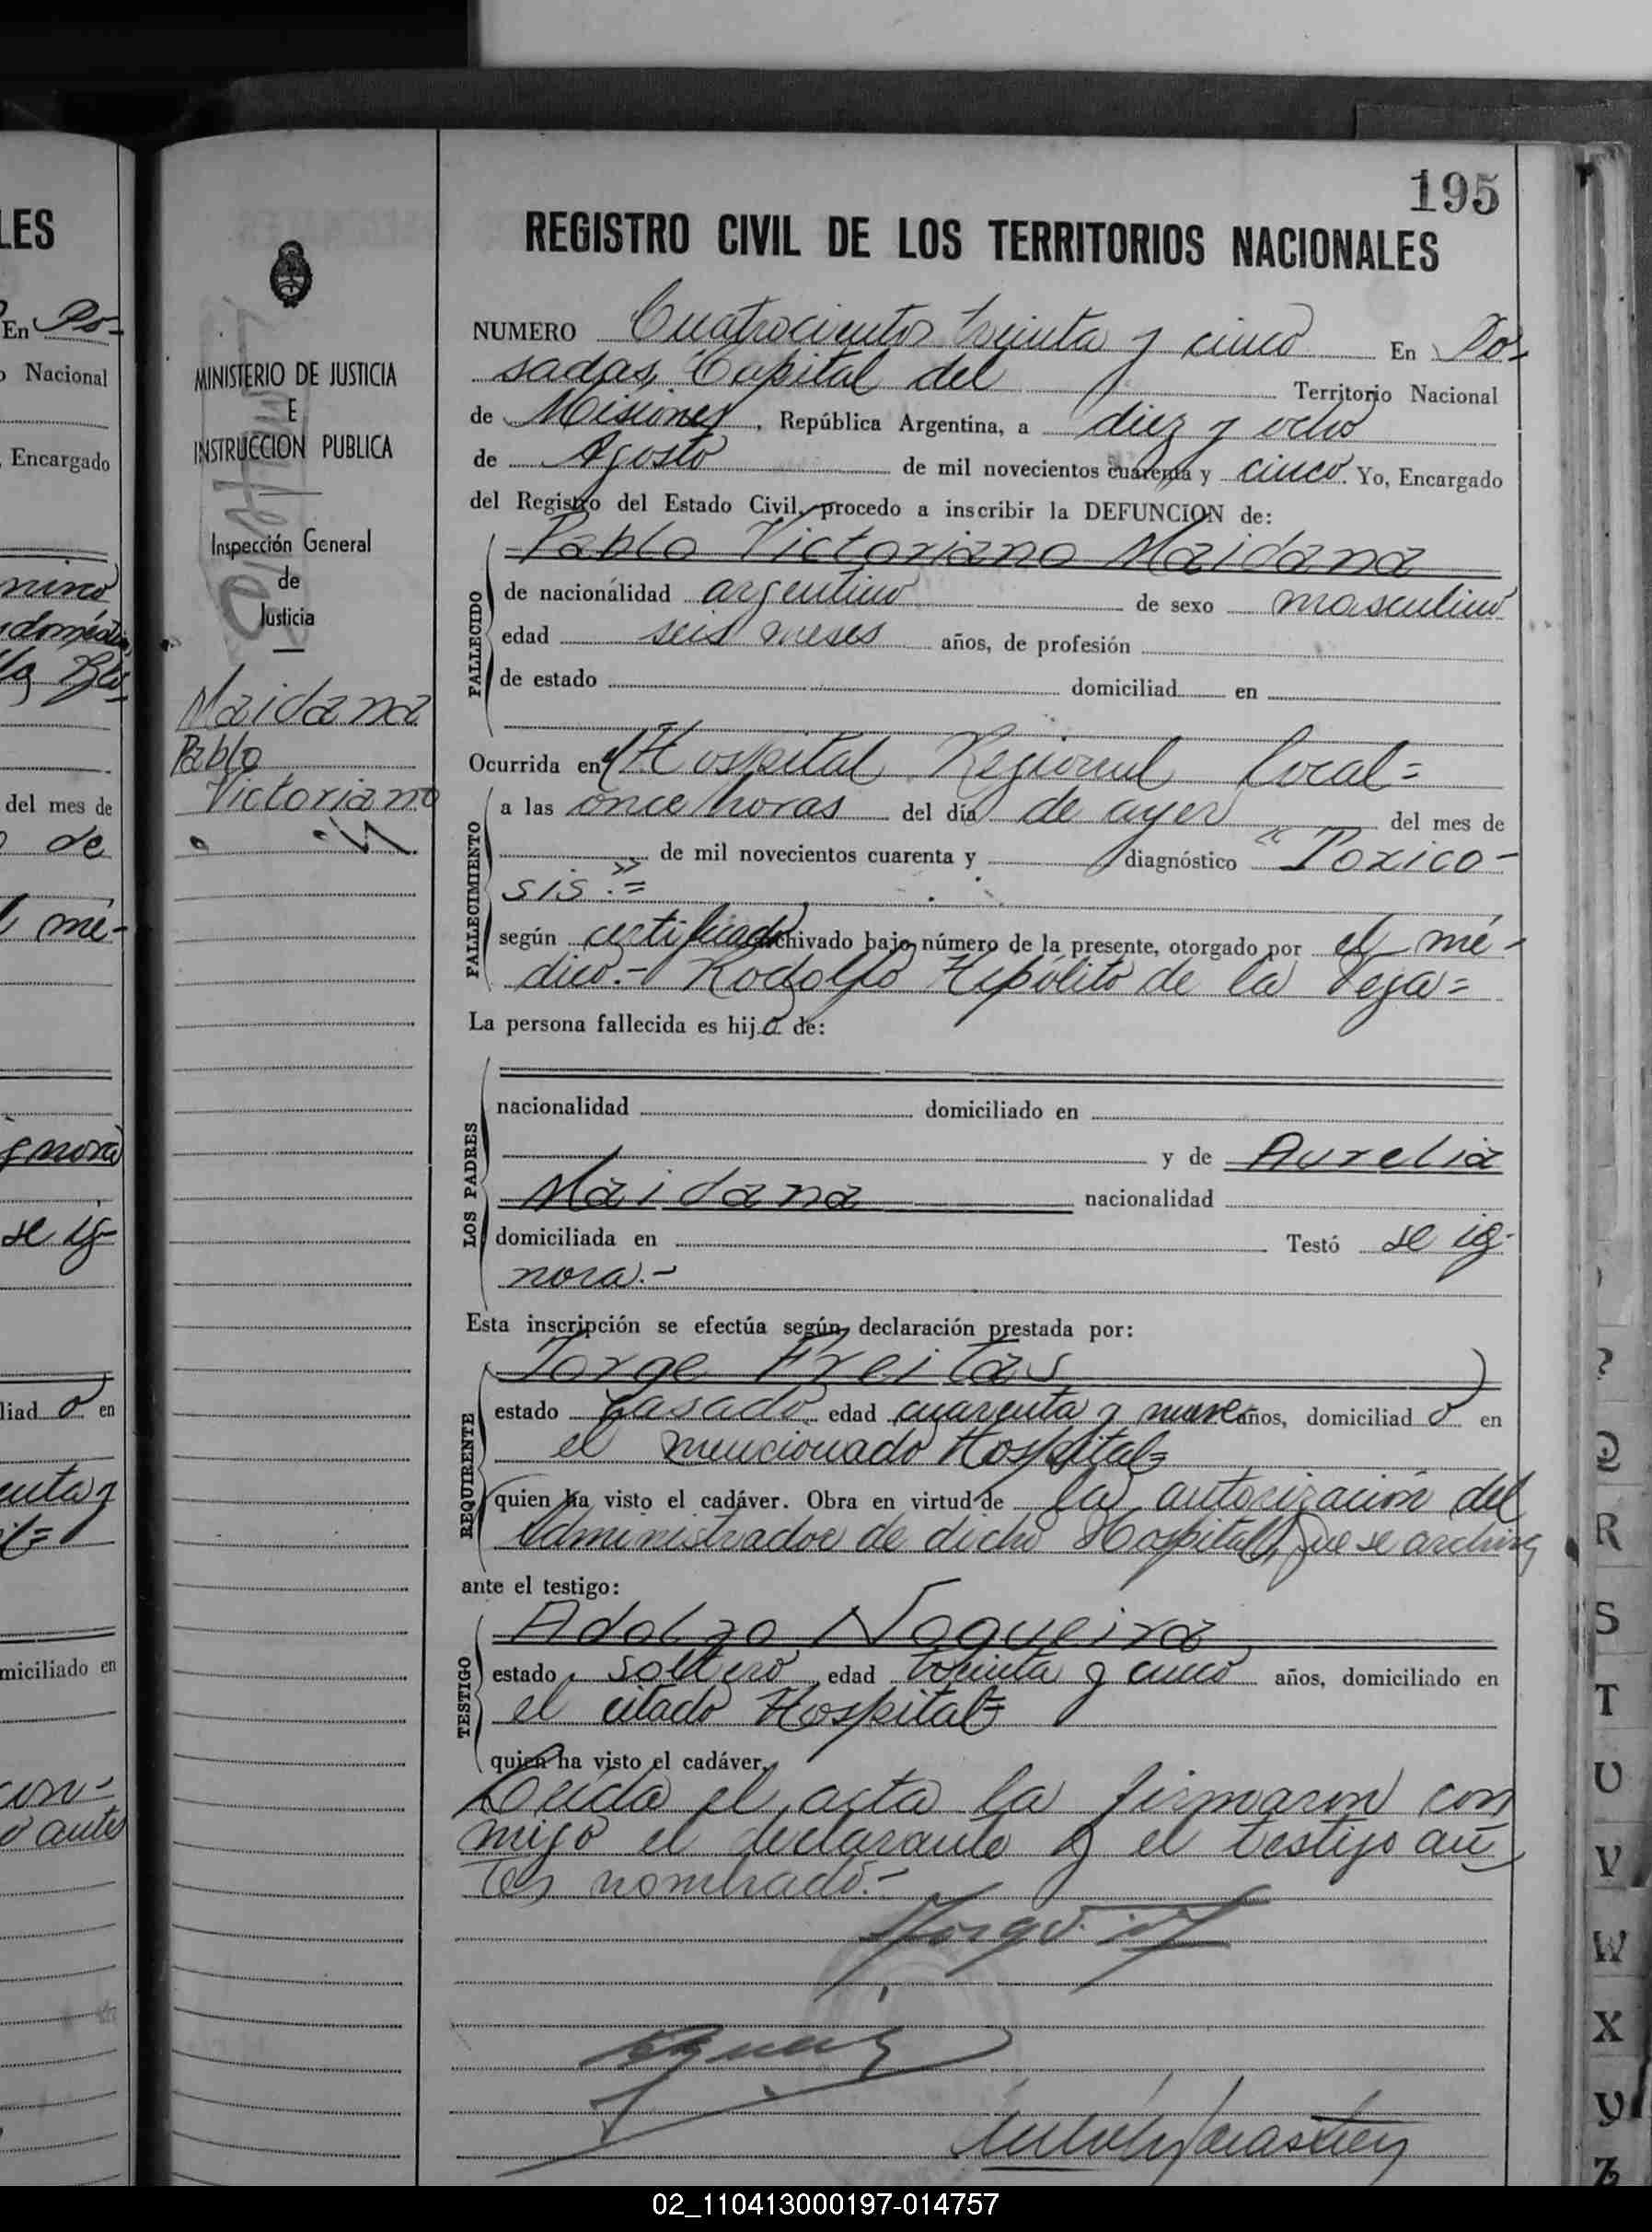 LES
En Po-
o Nacional
, Encargado
del mes de
o de
l mé-
se ig-
liad o en
miciliado en
o antes
MINISTERIO DE JUSTICIA
E
INSTRUCCION PUBLICA
Inspección General
de
Justicia
Maidana
Pablo
Victoriano
195
REGISTRO CIVIL DE LOS TERRITORIOS NACIONALES
NUMERO Cuatrocientos treinta y cinco En Po-
sadas, Capital del Territorio Nacional
de Misiones, República Argentina, a diez y ocho
de Agosto de mil novecientos cuarenta y cinco. Yo, Encargado
del Registro del Estado Civil, procedo a inscribir la DEFUNCION de:
Pablo Victoriano Maidana
FALLECIDO
de nacionalidad argentino de sexo masculino
edad seis meses años, de profesión
de estado domiciliad en
Ocurrida en el Hospital Regional local=
FALLECIMIENTO
a las once horas del día de ayer del mes de
de mil novecientos cuarenta y diagnóstico "Toxico-
sis".=
según certificado archivado bajo número de la presente, otorgado por el mé-
dico.- Rodolfo Hipólito de la Vega=
La persona fallecida es hijo de:
LOS PADRES
nacionalidad domiciliado en
y de Aurelia
Maidana nacionalidad
domiciliada en Testó se ig-
nora.-
Esta inscripción se efectúa según declaración prestada por:
Jorge Freitas
REQUIRENTE
estado casado edad cuarenta y nueve años, domiciliad o en
el mencionado Hospital=
quien ha visto el cadáver. Obra en virtud de la autorización del
Administrador de dicho Hospital, que se archiva
ante el testigo:
Adolfo Nogueira
TESTIGO
estado soltero edad treinta y cinco años, domiciliado en
el citado Hospital=
quien ha visto el cadáver.
Leída el acta la firmaron con
migo el declarante y el testigo an
tes nombrado.-
?
Q
R
S
T
U
V
W
X
Y
Z
02_110413000197-014757